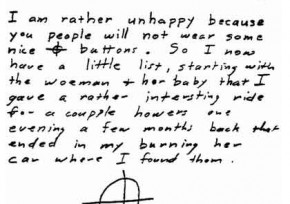 I am rather unhappy because
you people will not wear some
nice ⌖ buttons. So I now
have a little list, starting with
the woeman + her baby that I
gave a rather intersting ride
for a coupple howers one
evening a few months back that
ended in my burning her
car where I found them.